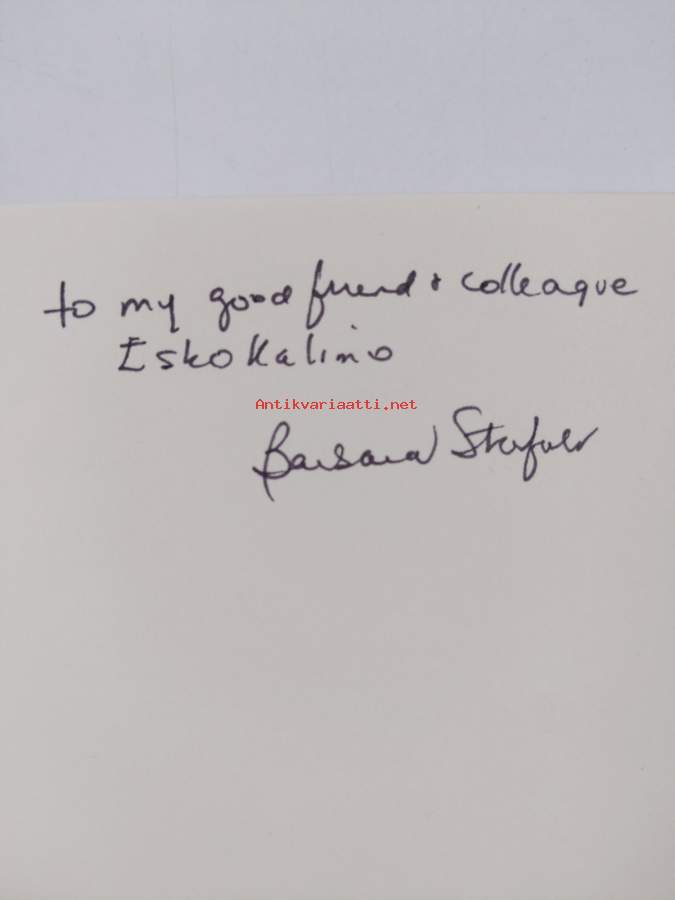 to my good friend & colleague
Esko Kalimo
Antikvariaatti.net
Barbara